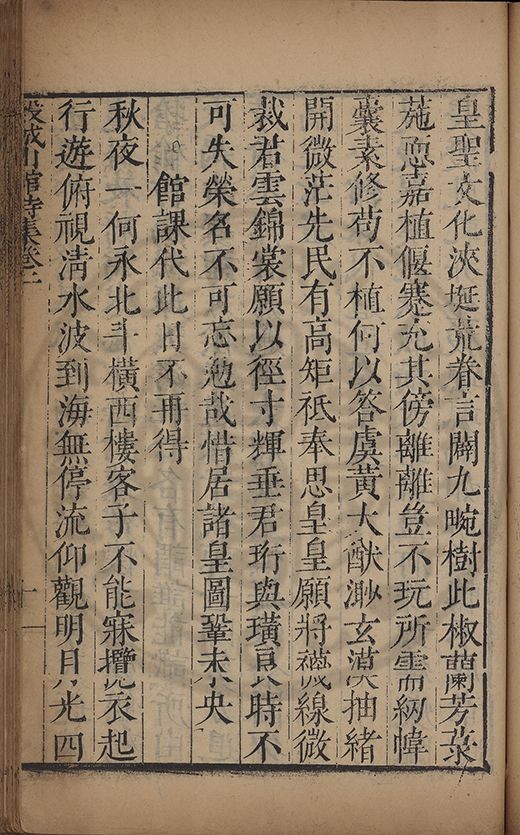 皇聖文化浹埏荒眷言闢九畹樹此椒蘭芳菉
葹愿嘉植偃蹇充其傍離離豈不玩所需紉幃
囊素修苟不植何以答虞黃大猷渺玄漠抽緒
開微茫先民有高矩祇奉思皇皇願將襪線微
裁君雲錦裳願以徑寸輝垂君珩與璜良時不
可失榮名不可忘勉哉惜居諸皇圖鞏未央
館課代此日不再得
秋夜一何永北斗橫西樓客子不能寐攬衣起
行遊俯視清水波到海無停流仰觀明月光四
穀城山館詩集卷二
十